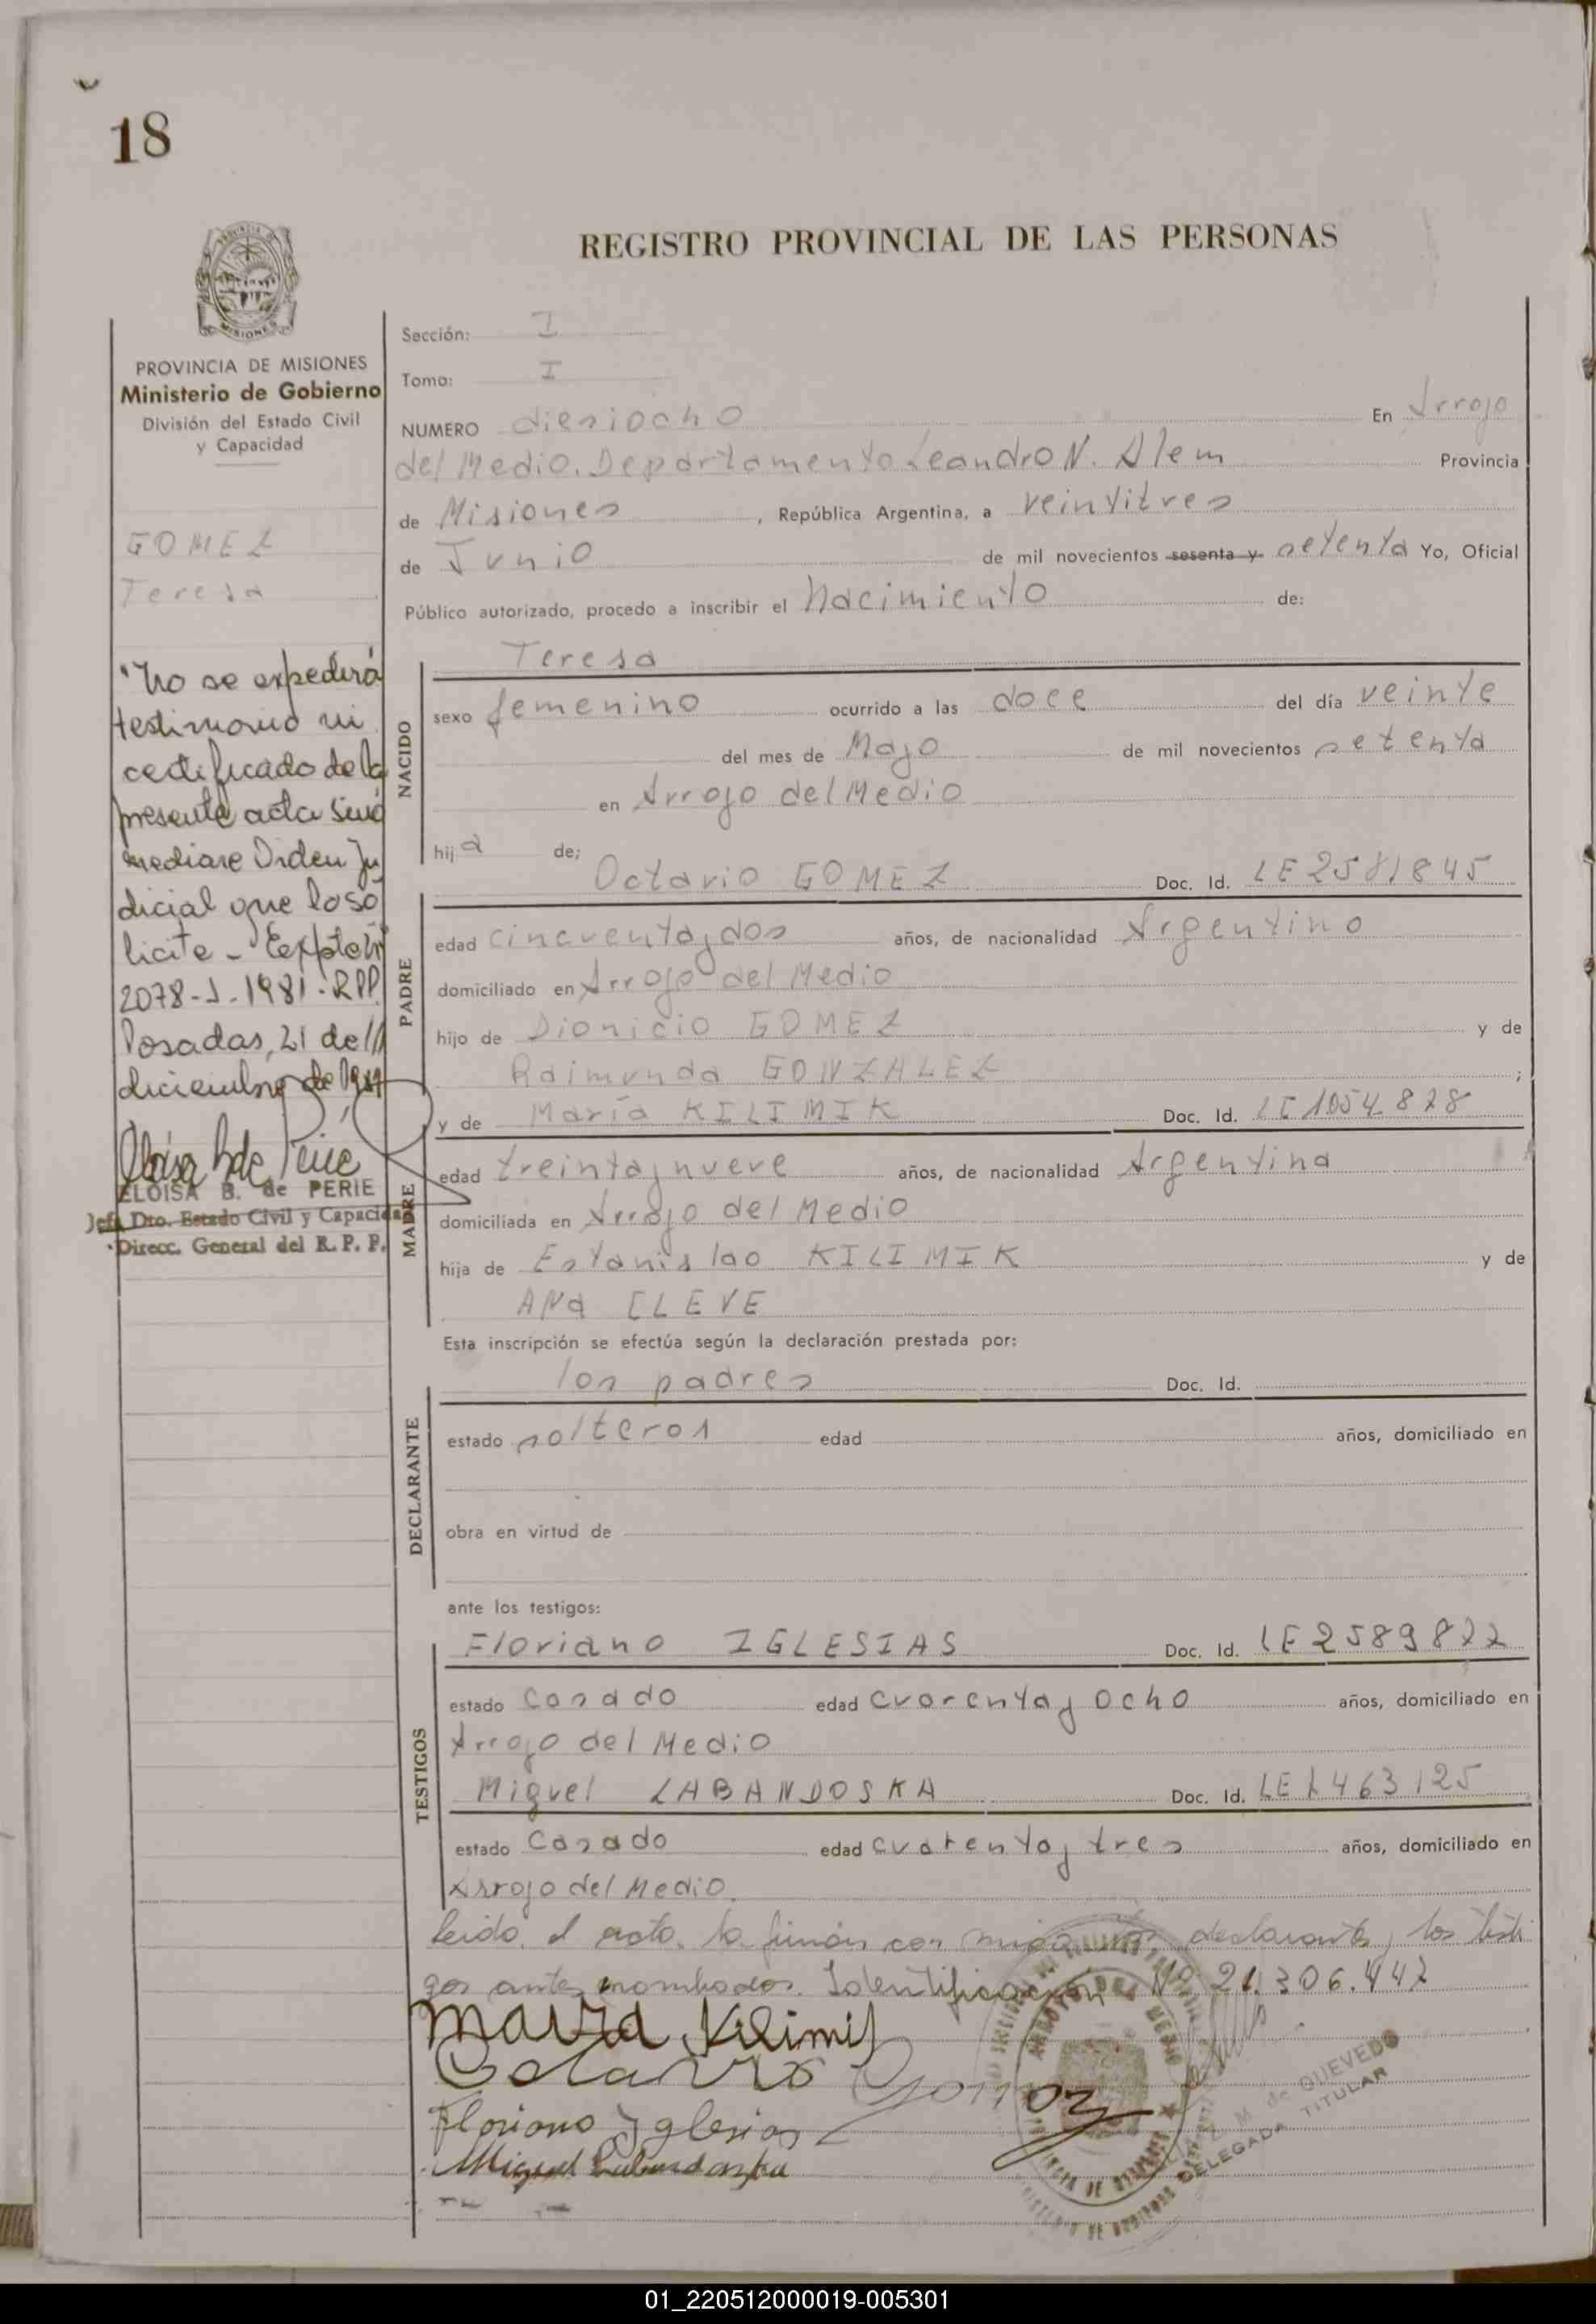 18
PROVINCIA DE MISIONES
Ministerio de Gobierno
División del Estado Civil
y Capacidad
GOMEZ
Teresa
"No se expedirá
testimonio ni
certificado de la
presente acta sino
mediare Orden Ju
dicial que lo so
licite - Expte
2078-J-1981-RPP.
Posadas, 21 de
diciembre de
ELOISA B. de PERIE
Jefa Dto. Estado Civil y Capacidad
Direcc. General del R. P. P.
REGISTRO PROVINCIAL DE LAS PERSONAS
Sección: I
Tomo: I
NUMERO diesiocho En Arroyo
del Medio. Departamento Leandro N. Alem Provincia
de Misiones, República Argentina, a veintitres
de Junio de mil novecientos sesenta y setenta Yo, Oficial
Público autorizado, procedo a inscribir el Nacimiento de:
NACIDO
Teresa
sexo femenino ocurrido a las doce del día veinte
del mes de Mayo de mil novecientos setenta
en Arroyo del Medio
hija de;
PADRE
Octavio GOMEZ Doc. Id. LE 2581845
edad cincuenta y dos años, de nacionalidad Argentino
domiciliado en Arroyo del Medio
hijo de Dionicio GOMEZ y de
Raimunda GONZALEZ ;
MADRE
y de María KILIMIK Doc. Id. LE 1054828
edad treinta y nueve años, de nacionalidad Argentina
domiciliada en Arroyo del Medio
hija de Estanislao KILIMIK y de
ANa CLEVE
Esta inscripción se efectúa según la declaración prestada por:
DECLARANTE
los padres Doc. Id.
estado solteros edad años, domiciliado en
obra en virtud de
ante los testigos:
TESTIGOS
Floriano IGLESIAS Doc. Id. LE 2589822
estado Casado edad cuarenta y ocho años, domiciliado en
Arroyo del Medio
Miguel LABANDOSKA Doc. Id. LE 463125
estado Casado edad cuarenta y tres años, domiciliado en
Arroyo del Medio.
leida el acta, la firman con migo los declarantes y los testi
gos antes nombrados. Identificación Nº 21.306.442
Maria Kilimik
Octavio Gomez
Floriano Yglesias
Miguel Labandoska
ARROYO DEL MEDIO
M de QUEVEDO
DELEGADA TITULAR
01_220512000019-005301